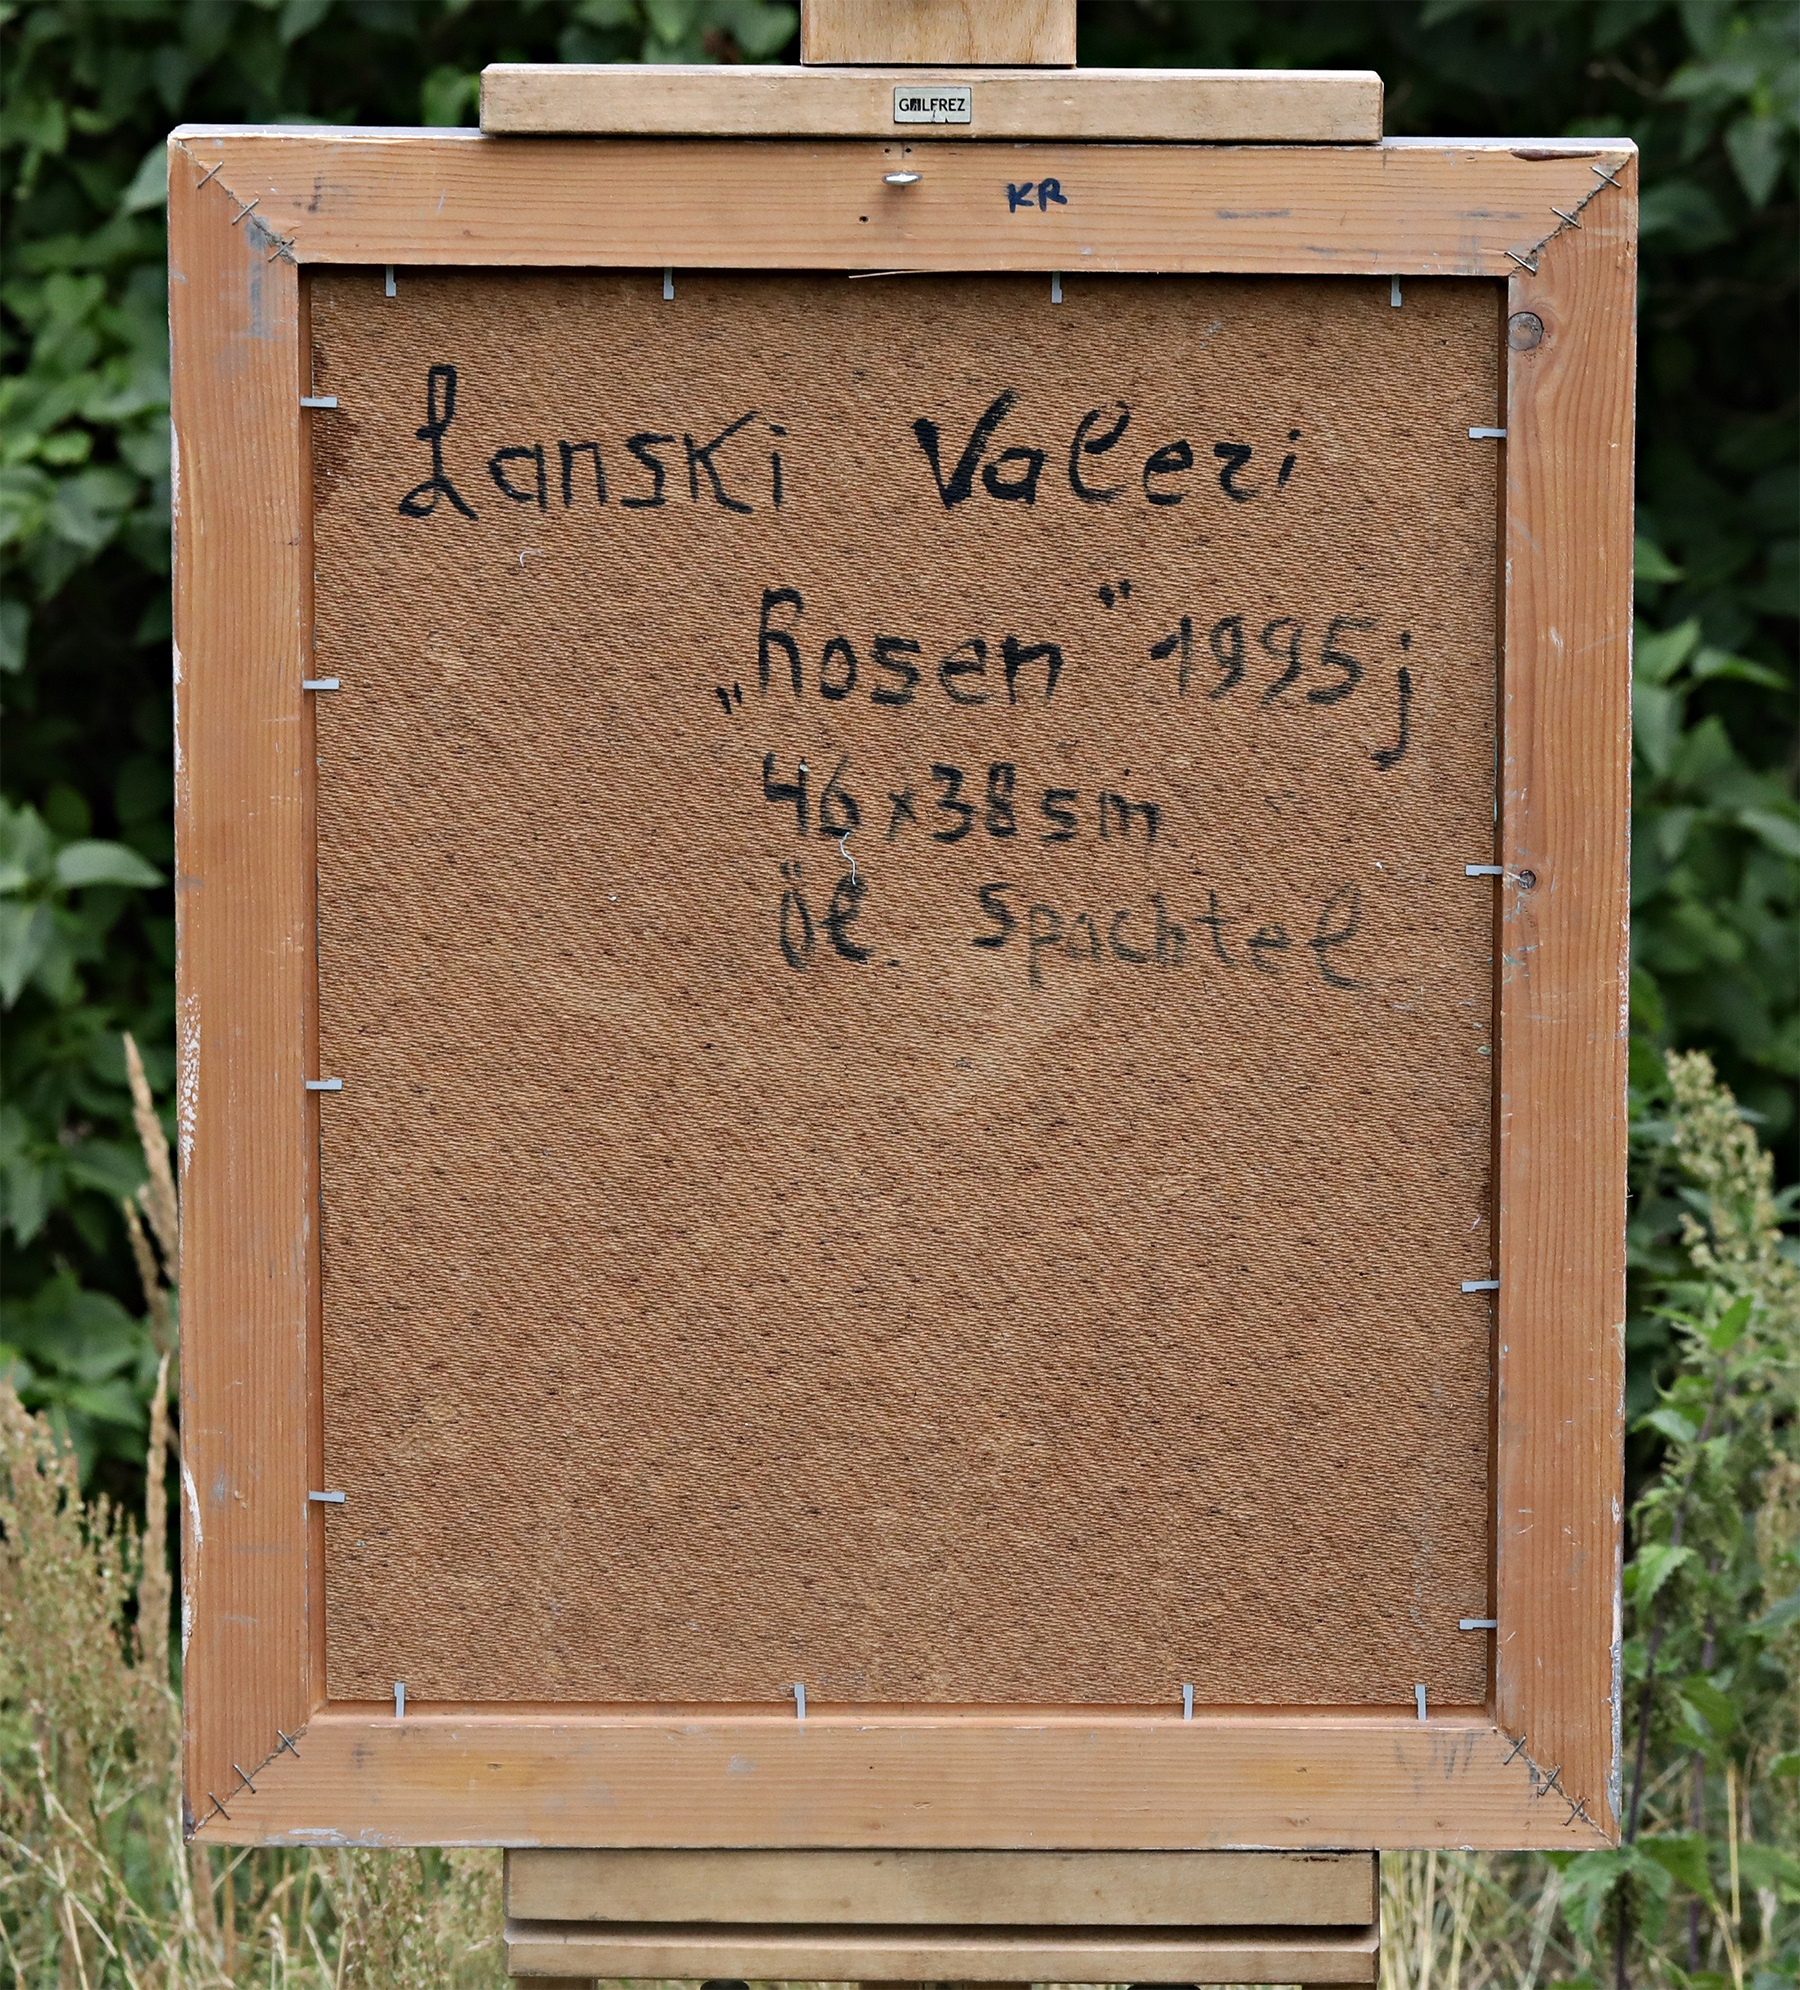 GALFREZ
KR
Lanski Valeri
„Rosen" 1995 j
46 x 38 sm
Öl. Spachtel